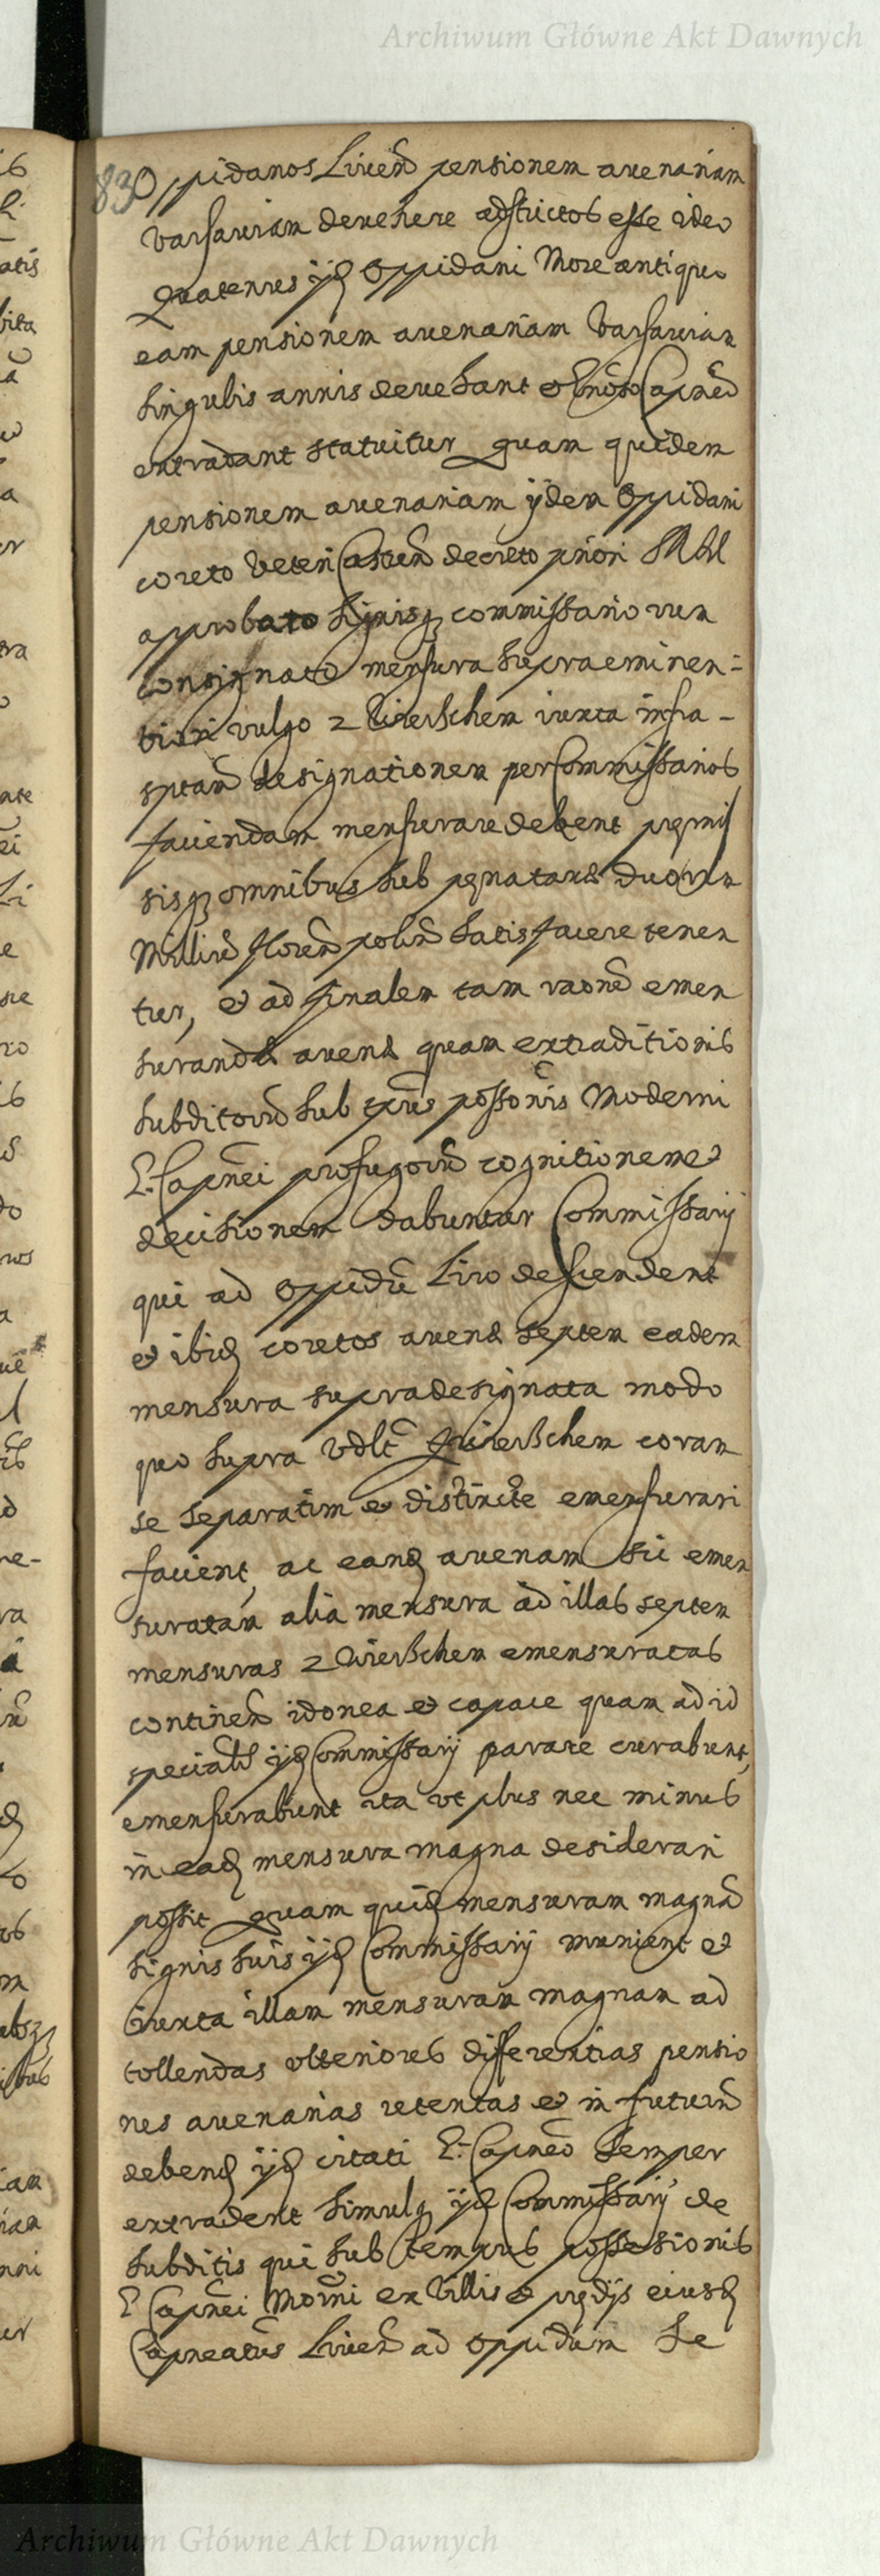 Archiwum Główne Akt Dawnych
83
Oppidanos Liven pensionem avenariam
Varsaviam devehere adstrictos esse ideo
Quatenus ijd Oppidani More antiquo
eam pensionem avenariam Varsaviam
singulis annis devehant et Capneo
extradant statuitur quam quidem
pensionem avenariam ijdem Oppidani
coreto veteri Castren decreto priori
approbato signisq commissariorum
consignato mensura supraeminen=
tiori vulgo z Wierschem iuxta infra-
sptam designationem per Commissarios
faciendam mensurare debent pmis
sisq omnibus sub pna taxae duorum
Millium floren polon satisfacere tenen
tur, et ad finalem tam raone emen
surandae avenae quam extraditionis
subditorum sub tpus possonis Moderni
G. Capnei profugorum cognitionem et
decisionem dabuntur Commissarij
qui ad Oppidum Liw descendent
et ibid coretos avenae septem eadem
mensura supradesignata modo
quo supra vdlt z Wierschem coram
se separatim et distincte emensurari
facient, ac eand avenam sic emen
suratam alia mensura ad illas septem
mensuras z Wierschem emensuratas
continen idonea et capace quam ad id
specialr ijd Commissarij parare curabunt,
emensurabunt ita vt plus nec minus
in ead mensura magna desiderari
possit quam quid mensuram magnam
signis suis ijd Commissarij munient et
iuxta illam mensuram magnam ad
tollendas vlteriores differentias pensio
nes avenarias retentas et in futurum
debend ijd citati G. Capneo semper
extradent simulq ijd Commissarij de
subditis qui sub tempus possessionis
G Capnei Moderni ex Villis et pdijs eiusd
Capneatus Liven ad oppidum se
Archiwum Główne Akt Dawnych